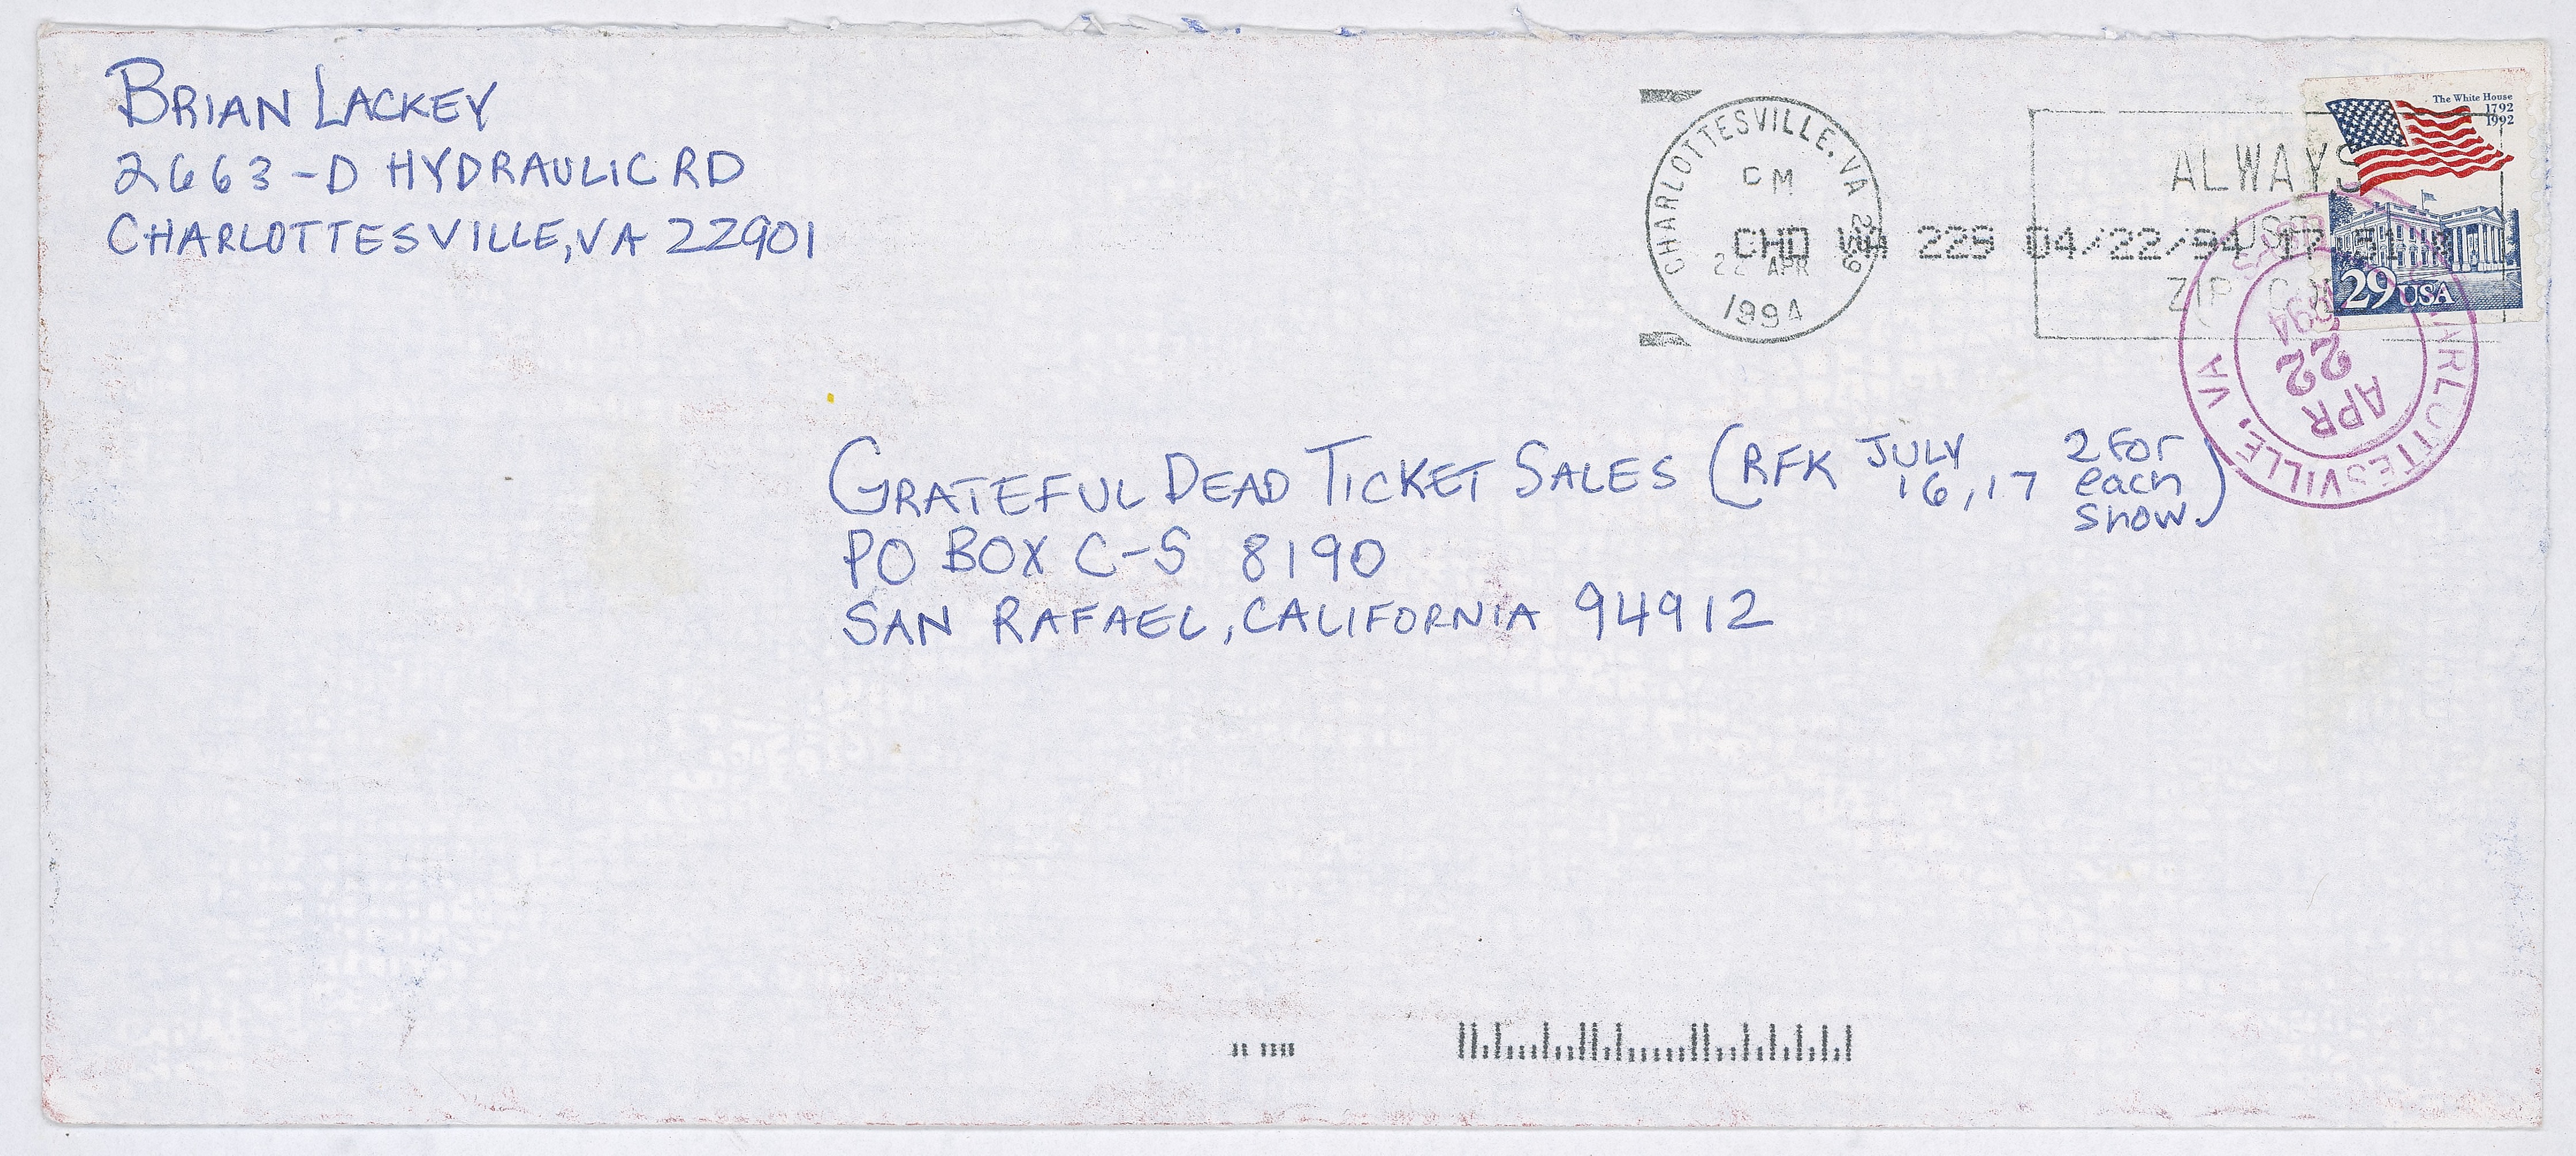 BRIAN LACKEY
2663-D HYDRAULIC RD
CHARLOTTESVILLE, VA 22901
CHARLOTTESVILLE, VA
22 APR
1994
CHO VA 229 04/22/94
ALWAYS
USE
ZIP
The White House
1792
1992
29 USA
CHARLOTTESVILLE, VA
APR
22
1994
GRATEFUL DEAD TICKET SALES (RFK JULY 16, 17 2 for each show)
PO BOX C-S 8190
SAN RAFAEL, CALIFORNIA 94912